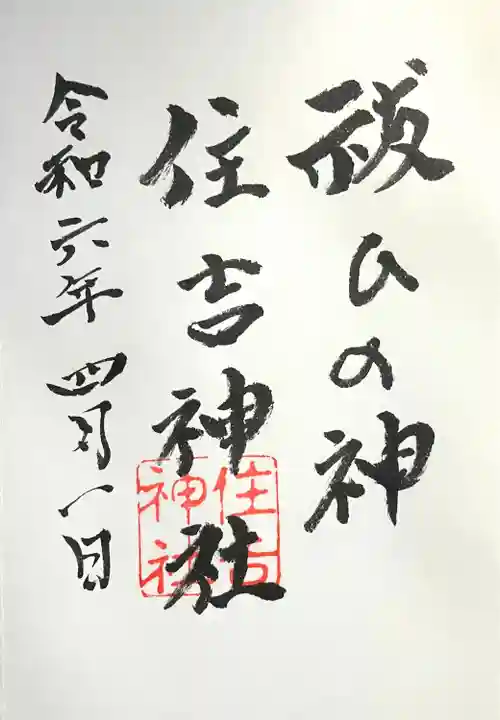 祓ひの神
住吉神社
令和六年四月一日
住吉神社